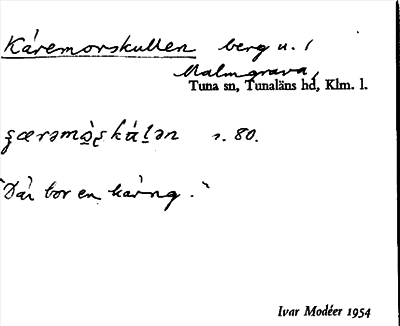 Käremorskullen berg u. /
Malmgrava,
Tuna sn, Tunaläns hd, Klm. l.
s. 80.
"Där bor en käring."
Ivar Modéer 1954